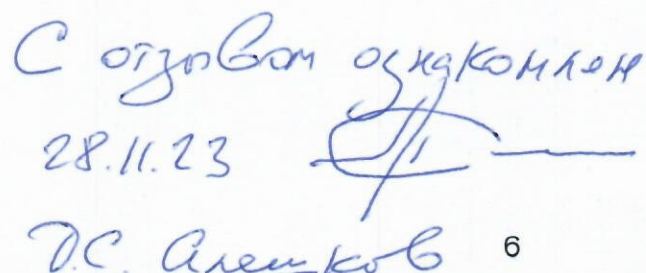 С отзывом ознакомлен
28.11.23
Д.С. Алешков 6